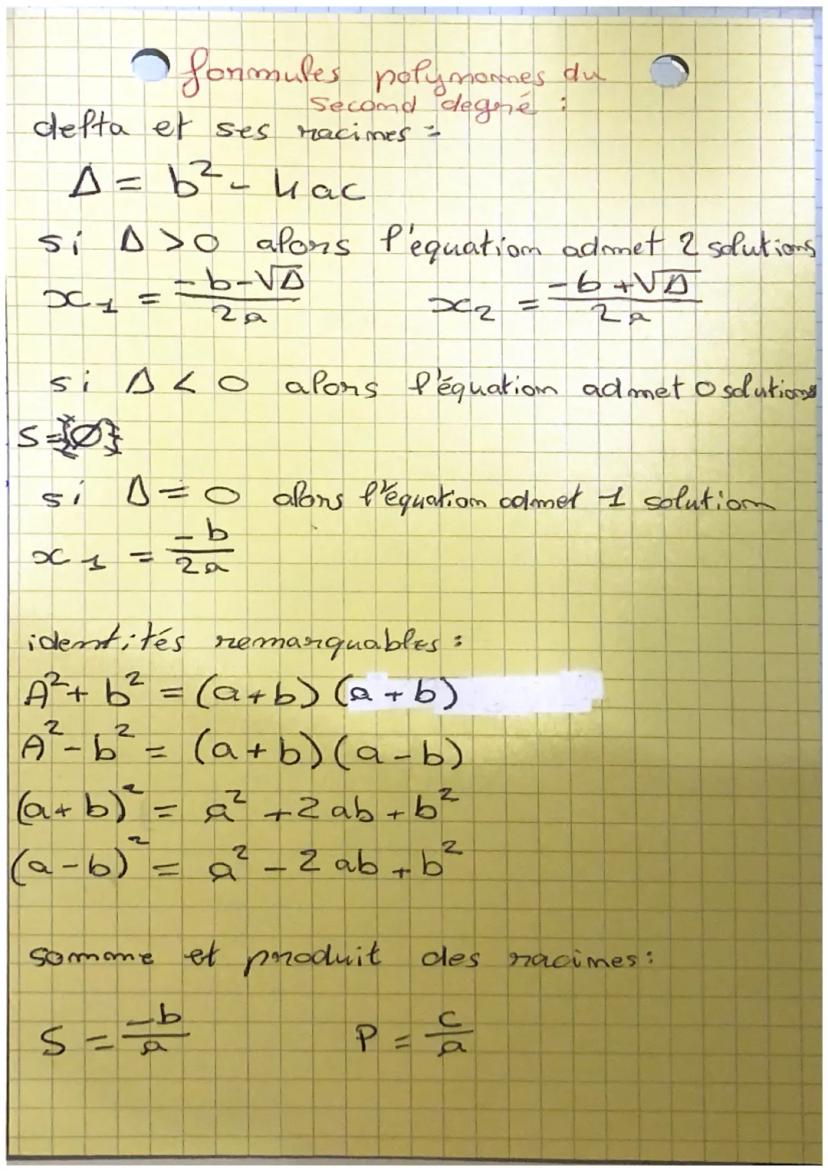 formules polynomes du
second degré :
delta et ses racines :
Δ = b² - 4ac
si Δ > 0 alors l'équation admet 2 solutions
x₁ = (-b-√Δ)/2a x₂ = (-b+√Δ)/2a
si Δ < 0 alors l'équation admet 0 solutions
S = {∅}
si Δ = 0 alors l'équation admet 1 solution
x₁ = -b/2a
identités remarquables :
A² + b² = (a+b)(a+b)
A² - b² = (a+b)(a-b)
(a+b)² = a² + 2ab + b²
(a-b)² = a² - 2ab + b²
somme et produit des racines :
S = -b/a P = c/a